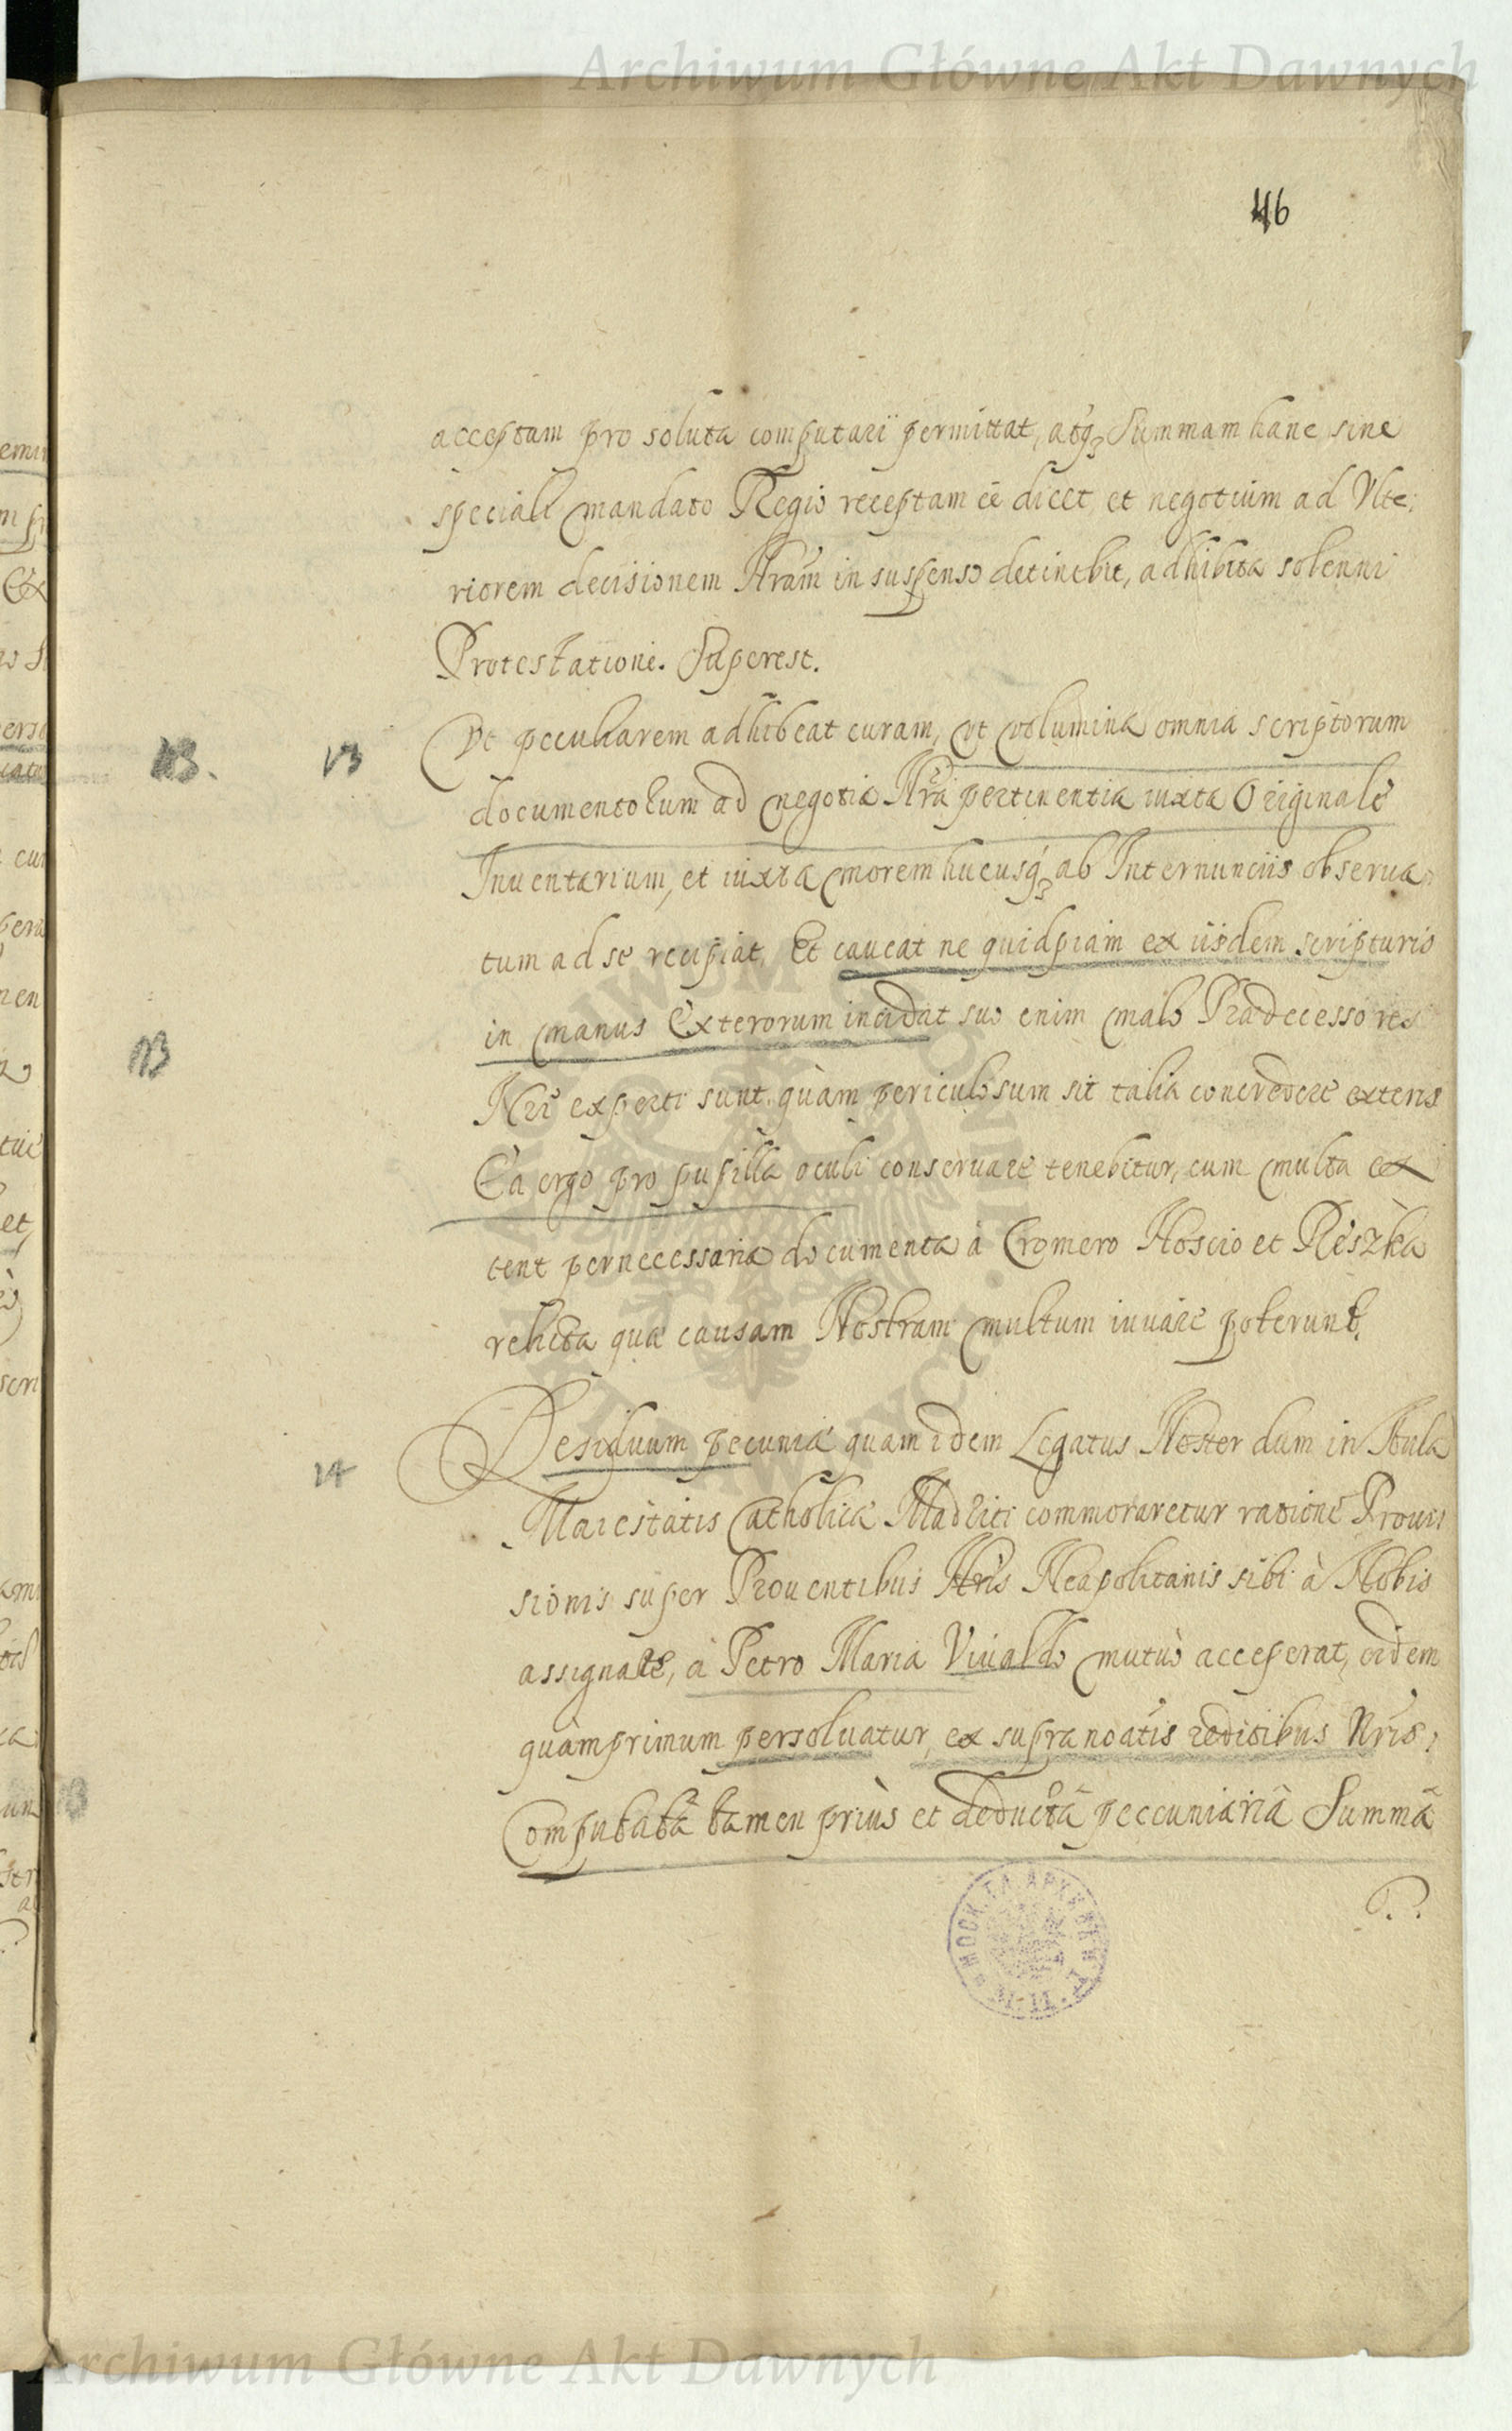 Archiwum Główne Akt Dawnych
46
acceptam pro soluta computari permittat, atq₃ Summam hanc sine
speciali mandato Regio receptam eē dicet, et negotium ad Vlte:
riorem decisionem Nram in suspenso detinebit, adhibita solenni
Protestatione. Superest.
NB. 13 Vt peculiarem adhibeat curam, vt volumina omnia scriptorum
documentorum ad negotia Nrã pertinentia iuxta Originale
Inuentarium, et iuxta morem hucusq₃ ab Internunciis obserua
tum ad se recipiat, Et caueat ne quidpiam ex iisdem scripturis
in manus Exterorum incidat suo enim malo Prædecessores
NB
Nrĩ experti sunt quàm periculosum sit talia concredere exteris
Ea ergo pro pupilla oculi conseruare tenebitur, cum multa ex
tent pernecessaria documenta à Cromero Hosio et Reszka
relicta quæ causam Nostram multum iuuare poterunt.
14 Residuum pecuniæ quam idem Legatus Noster dum in Aula
Maiestatis Catholicæ Madriti commoraretur ratione Proui
sionis super Prouentibus Nris Neapolitanis sibi à Nobis
assignatæ, à Petro Maria Viualdo mutuò acceperat, eidem
quàmprimum persoluatur, ex supranoatis reditibus Nris:
Computatâ tamen priùs et deductâ peccuniariâ Summâ
Archiwum Główne Akt Dawnych